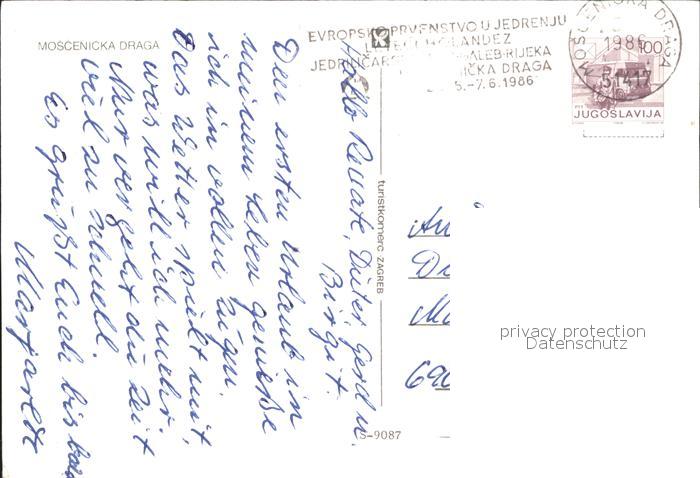 MOŠĆENIČKA DRAGA
EVROPSKO PRVENSTVO U JEDRENJU
LETEĆI HOLANDEZ
JEDRILIČARSKI GALEB RIJEKA
MOŠĆENIČKA DRAGA
5.-7.6.1986
MOŠĆENIČKA DRAGA
1986
51417
100
JUGOSLAVIJA
Hallo Renate, Dieter, Gerd u.
Birgit.
Den ersten Urlaub in
meinem Leben genieße
ich in vollen Zügen.
Das Wetter spielt mit,
was will ich mehr.
Nur vergeht die Zeit
viel zu schnell.
Es grüßt Euch bis bald
turistkomerc ZAGREB
S-9087
An
690
privacy protection
Datenschutz